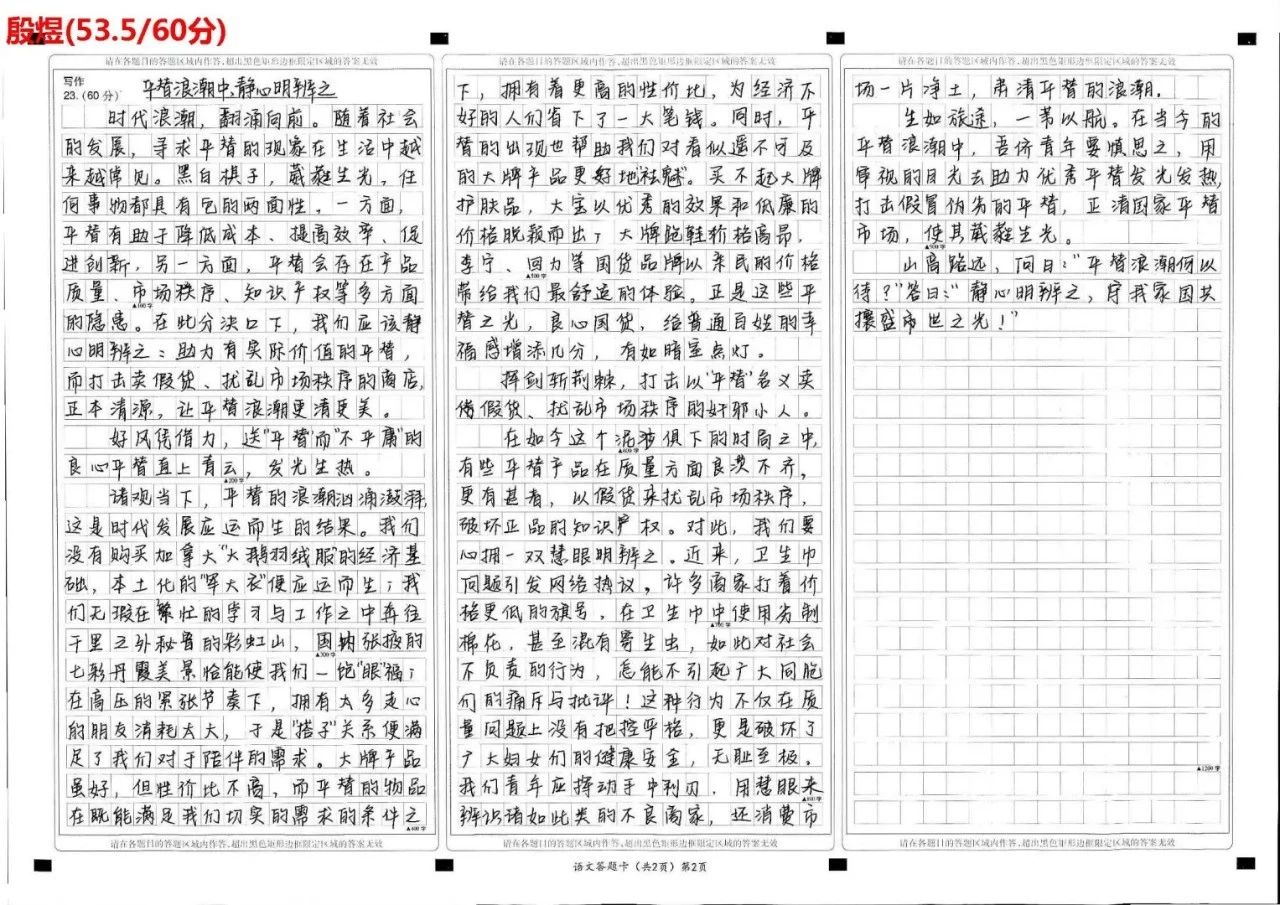 殷煜(53.5/60分)
请在各题目的答题区域内作答,超出黑色矩形边框限定区域的答案无效
写作
23.(60分)
平替浪潮中,静心明辨之
时代浪潮，翻涌向前。随着社会
的发展，寻求平替的现象在生活中越
来越常见。黑白棋子，葳蕤生光，任
何事物都具有它的两面性。一方面，
平替有助于降低成本、提高效率、促
进创新，另一方面，平替会存在产品
质量、市场秩序、知识产权等多方面
▲100字
的隐患。在此分决口下，我们应该静
心明辨之：助力有实际价值的平替，
而打击卖假货、扰乱市场秩序的商店，
正本清源，让平替浪潮更清更美。
好风凭借力，送"平替"而"不平庸"的
良心平替直上青云，发光生热。
▲200字
诸观当下，平替的浪潮汹涌澎湃，
这是时代发展应运而生的结果。我们
没有购买加拿大"大鹅羽绒服"的经济基
础，本土化的"军大衣"便应运而生；我
们无瑕在繁忙的学习与工作之中再往
千里之外秘鲁的彩虹山，国纳张掖的
▲300字
七彩丹霞美景恰能使我们一饱"眼"福；
在高压的紧张节奏下，拥有太多走心
的朋友消耗太大，于是"搭子"关系便满
足了我们对于陪伴的需求。大牌产品
虽好，但性价比不高，而平替的物品
在既能满足我们切实的需求的条件之
▲400字
请在各题目的答题区域内作答,超出黑色矩形边框限定区域的答案无效
请在各题目的答题区域内作答,超出黑色矩形边框限定区域的答案无效
下，拥有着更高的性价比，为经济不
好的人们省下了一大笔钱。同时，平
替的出现也帮助我们对看似遥不可及
的大牌产品更好地"祛魅"。买不起大牌
护肤品，大宝以优秀的效果和低廉的
价格脱颖而出；大牌跑鞋价格高昂，
李宁、回力等国货品牌以亲民的价格
▲500字
带给我们最舒适的体验。正是这些平
替之光，良心国货，给普通百姓的幸
福感增添几分，有如暗室点灯。
挥剑斩荆棘，打击以"平替"名义卖
假货、扰乱市场秩序的奸邪小人。
在如今这个泥沙俱下的时局之中，
▲600字
有些平替产品在质量方面良莠不齐，
更有甚者，以假货来扰乱市场秩序，
破坏正品的知识产权。对此，我们要
心拥一双慧眼明辨之。近来，卫生巾
问题引发网络热议。许多商家打着价
格更低的旗号，在卫生巾中使用劣制
▲700字
棉花，甚至混有寄生虫，如此对社会
不负责的行为，怎能不引起广大同胞
们的痛斥与批评！这种行为不仅在质
量问题上没有把控严格，更是破坏了
广大妇女们的健康安全，无耻至极。
我们青年应挥动手中利刃，用慧眼来
▲800字
辨识诸如此类的不良商家，还消费市
请在各题目的答题区域内作答,超出黑色矩形边框限定区域的答案无效
语文答题卡（共2页）第2页
请在各题目的答题区域内作答,超出黑色矩形边框限定区域的答案无效
场一片净土，肃清平替的浪潮。
生如旅途，一苇以航。在当今的
平替浪潮中，吾侪青年要慎思之，用
审视的目光去助力优秀平替发光发热，
打击假冒伪劣的平替，正清国家平替
市场，使其葳蕤生光。
▲900字
山高路远，问曰："平替浪潮何以
待？"答曰："静心明辨之，佇我家国共
攘盛市世之光！"
▲1200字
请在各题目的答题区域内作答,超出黑色矩形边框限定区域的答案无效